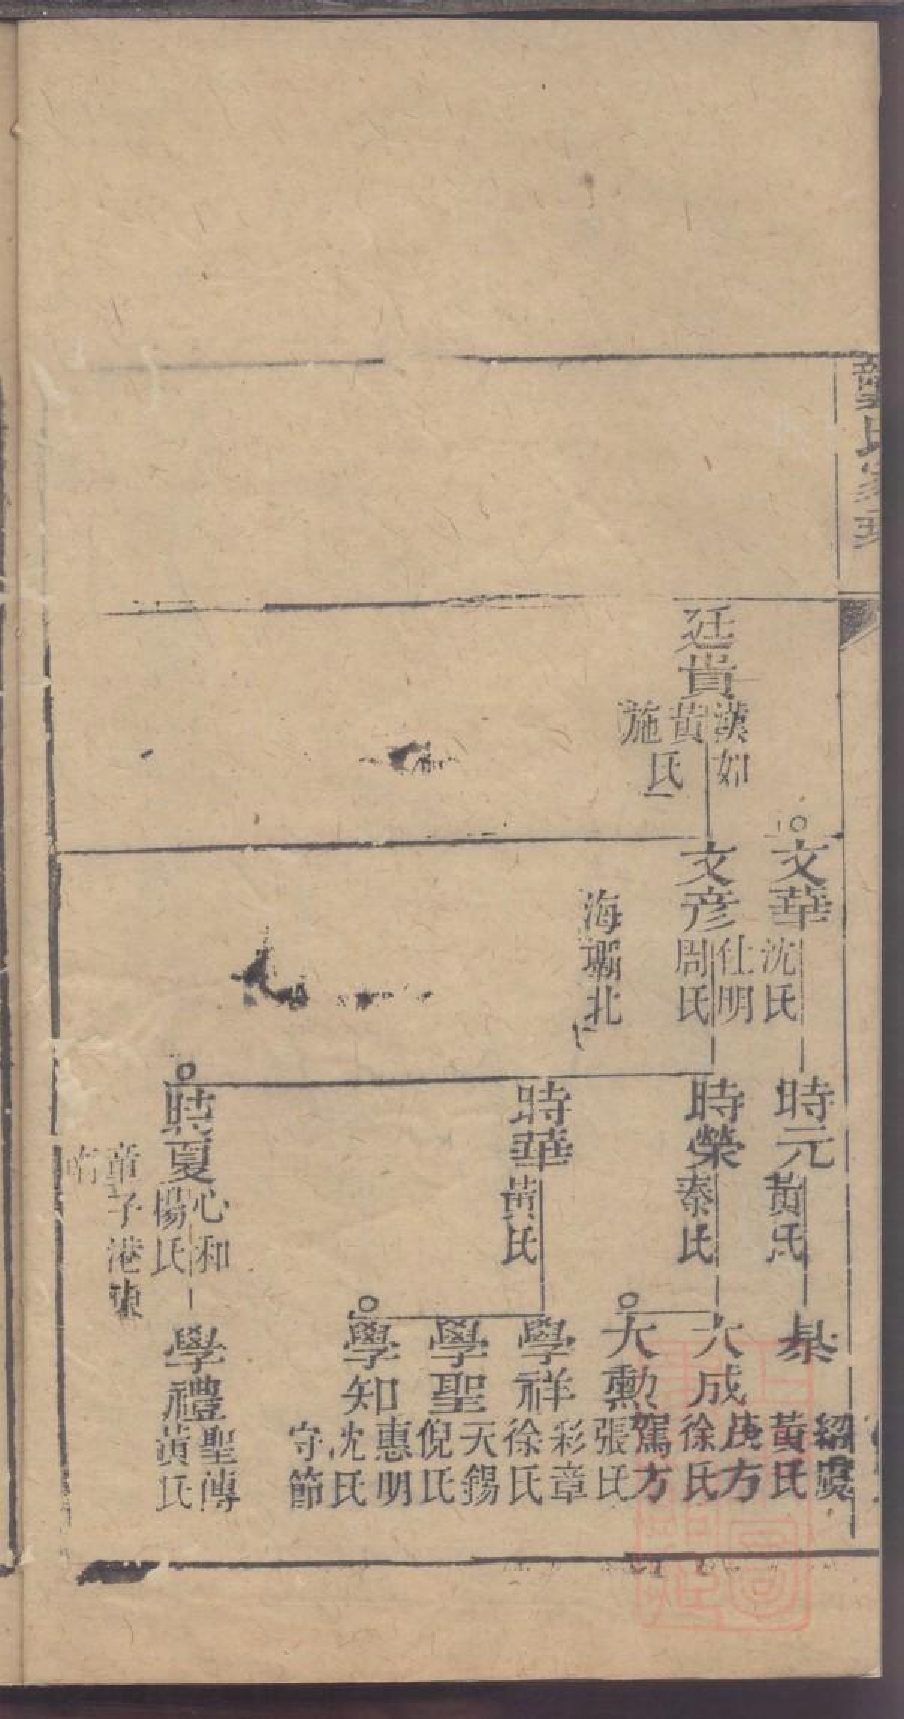 龔氏家
廷貴
漢如
黃
施
氏
文華
沈氏
文彥
仕明
周氏
海壩北
時元
黃氏
時榮
秦氏
時華
黃氏
時夏
心和
楊氏
童子港東
南
杲
黃氏
大成
庚方
徐氏
大勳
駕方
張氏
學祥
彩章
徐氏
學聖
天錫
倪氏
學知
惠明
沈氏
守節
學禮
聖傳
黃氏